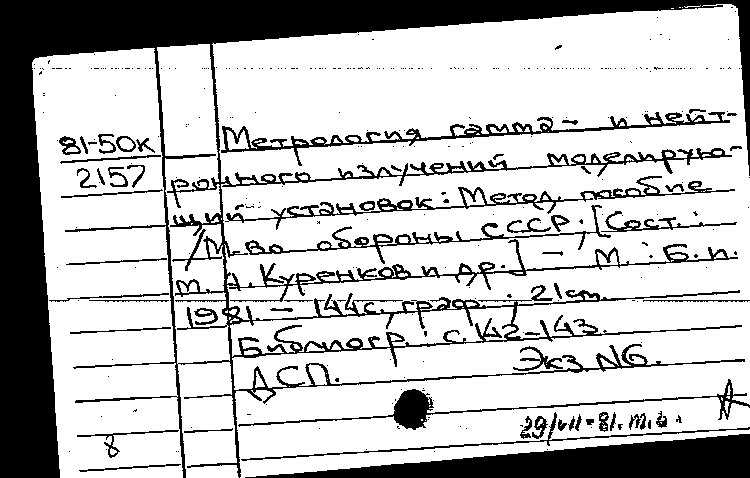 81-50к Метрология гамма- и нейт-
2157 ронного излучений моделирую-
щий установок: Метод. пособие
/М-во обороны СССР; [Сост.:
т. А. Куренков и др.] - М. : Б. и.
1981. - 144с., граф. ; 21 см.
Библиогр.: с. 142-143.
ДСП. Экз. N6.
8 29/VII-81. т.